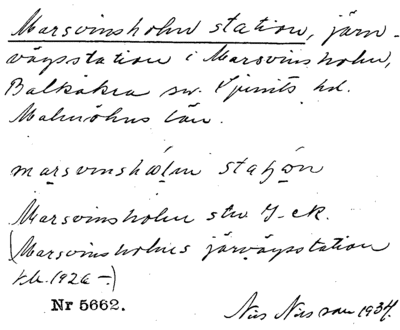 Marsvinsholm station, järn-
vägsstation i Marsvinsholm,
Balkåkra sn. Ljunits hd.
Malmöhus län.
marsvinshólm
Marsvinsholm stn
(Marsvinsholms järvägsstation
1926–)
Nr 5662.
Nils Nilsson 1934.